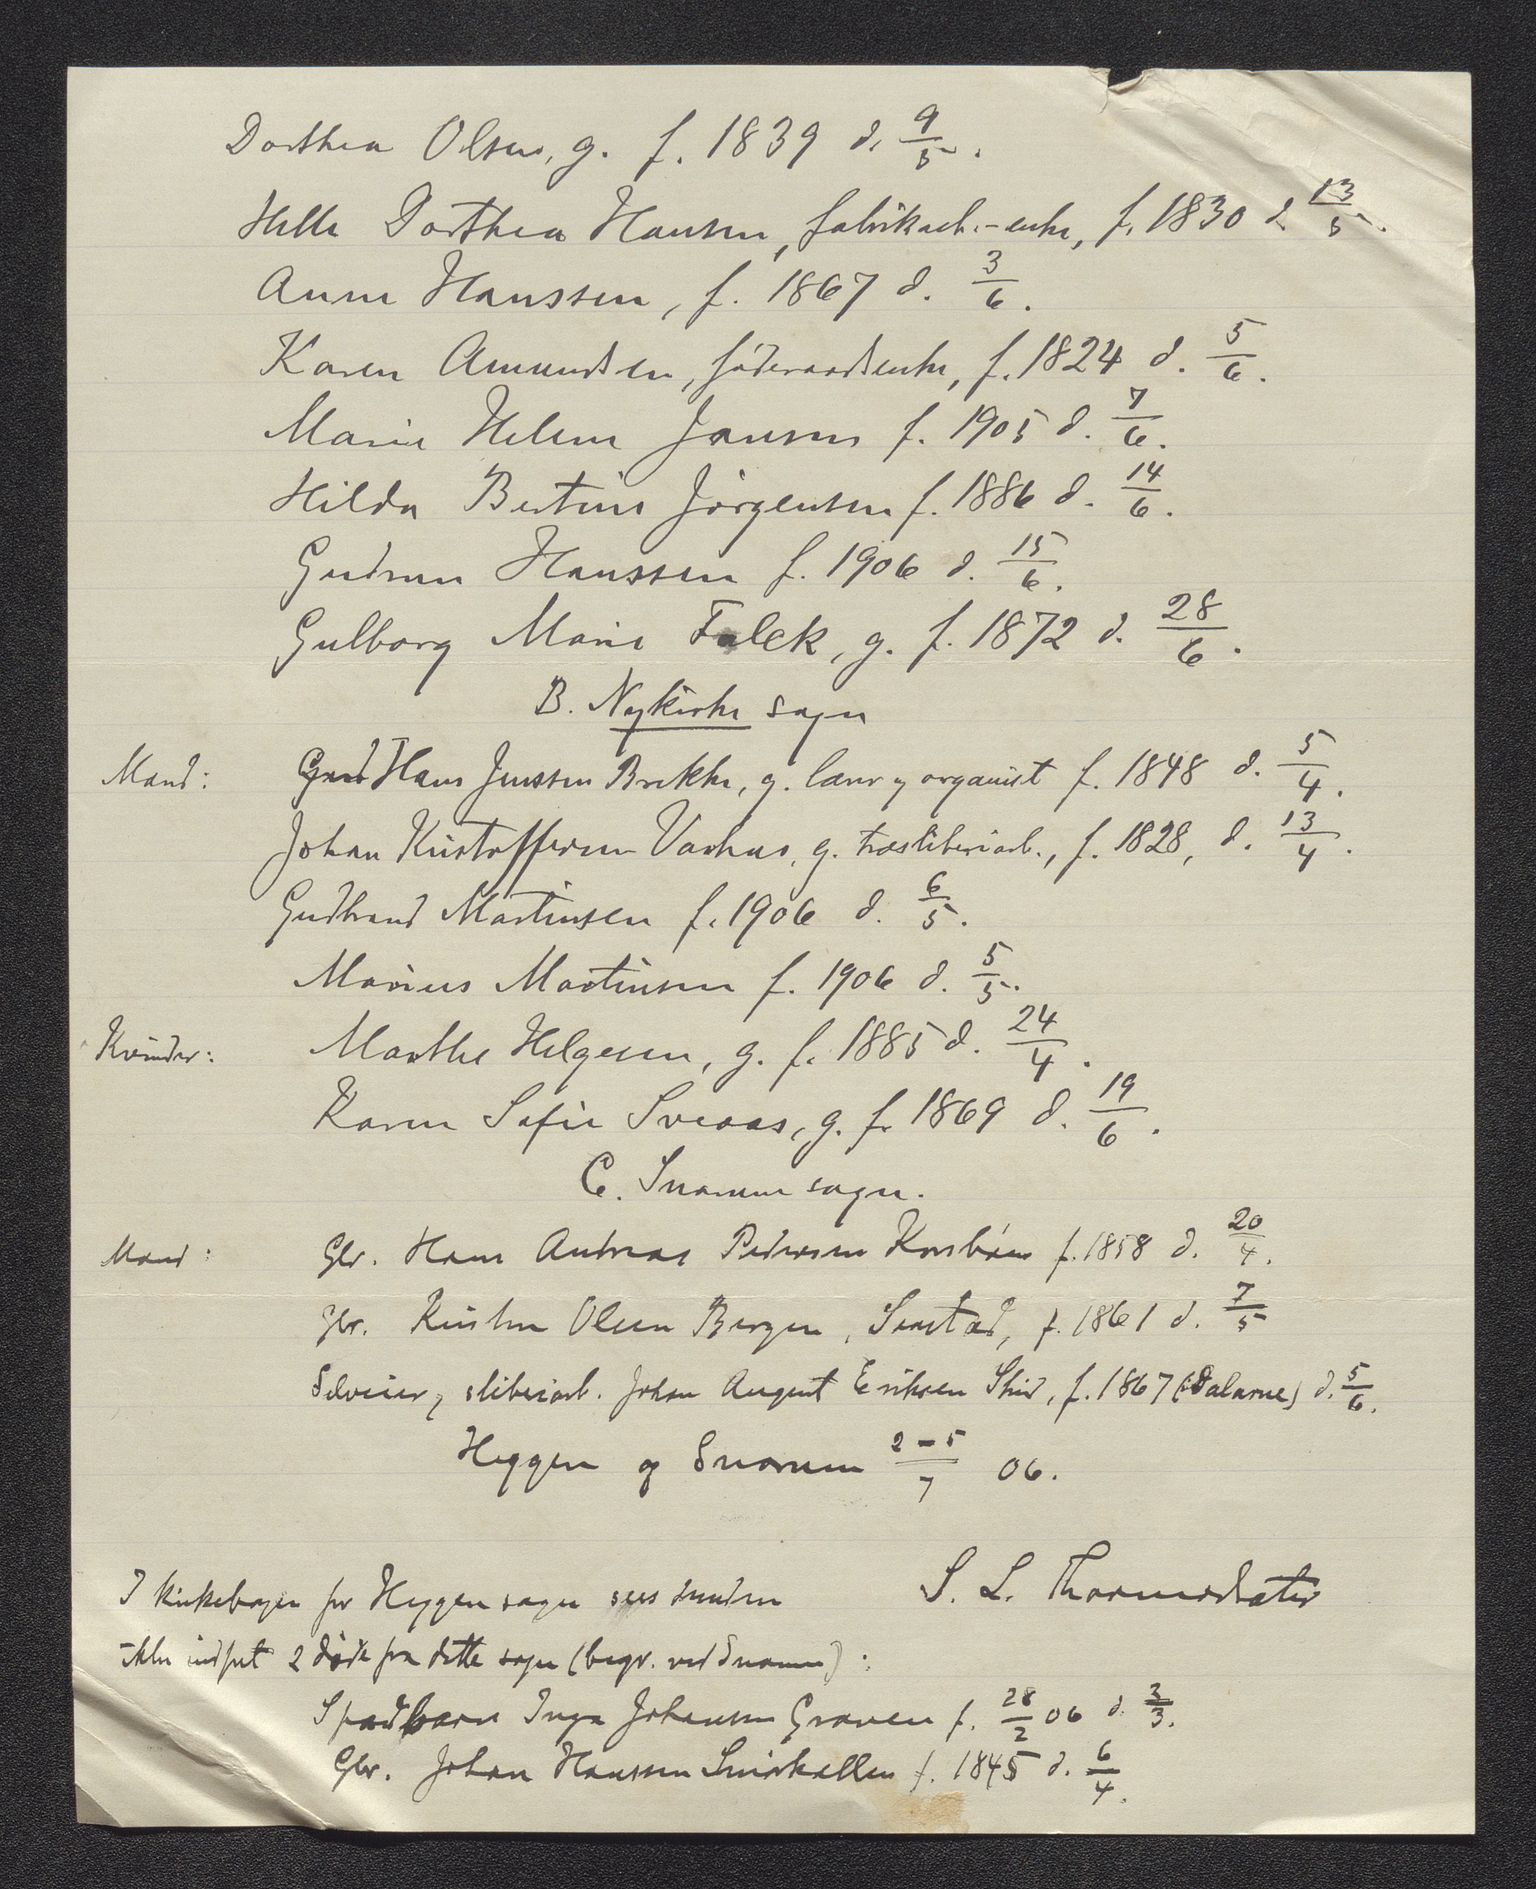 Dorthea Olsen, g. f. 1839 d. 9/5.
Helle Dorthea Hansen, fabrikarb.-enke, f. 1830 d 13/5.
Anne Hanssen, f. 1867 d. 3/6.
Karen Amundsen, föderaadsenke, f. 1824 d. 5/6.
Marie Helene Jansen f. 1905 d. 7/6.
Hilda Bertine Jörgensen f. 1886 d. 14/6.
Gudrun Hanssen f. 1906 d. 15/6.
Gulborg Marie Falck, g. f. 1872 d. 28/6.
B. Nykirke sogn
Mænd: Hans Jenssen Brekke, g. lærer og organist f. 1848 d. 5/4.
Johan Kristoffersen Varhus, g. træsliberiarb., f. 1828, d. 13/4.
Gudbrand Martinsen f. 1906 d. 6/5.
Marius Martinsen f. 1906 d. 5/5.
Kvinder: Marthe Helgesen, g. f. 1885 d. 24/4.
Karen Sofie Sveaas, g. f. 1869 d. 19/6.
C. Snarum sogn.
Mænd: Gbr. Hans Andreas Pedersen Korsböen f. 1858 d. 20/4.
Gbr. Kristen Olsen Bergen, f. 1861 d. 7/5
Selveier og sliberiarb. Johan August Eriksen f. 1867 (Dalarne) d. 5/6.
Heggen og Snarum 2-5/7 06.
S. L. Thormodsæter
I kirkebogen for Heggen sogn sees
ikke indfört 2 döde fra dette sogn (begr. ved Snarum):
Spædbarn Inga Johansen Graven f. 28/2 06 d. 3/3.
Gbr. Johan Hanssen f. 1845 d. 6/4.